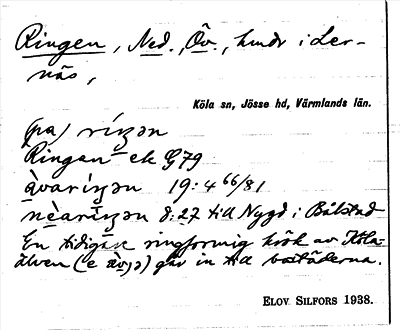 Ringen, Ned., Öv., hmdr i Ler-
näs,
Köla sn, Jösse hd, Värmlands län.
(pa) ríŋən
Ringan ek G79
àvaríŋən 19:4 66/81
nèaríŋən 8:27 till Nygd i Bålstad
En tidigare ringformig krök av Köla-
älven (e ) går in till bostäderna.
ELOV SILFORS 1938.